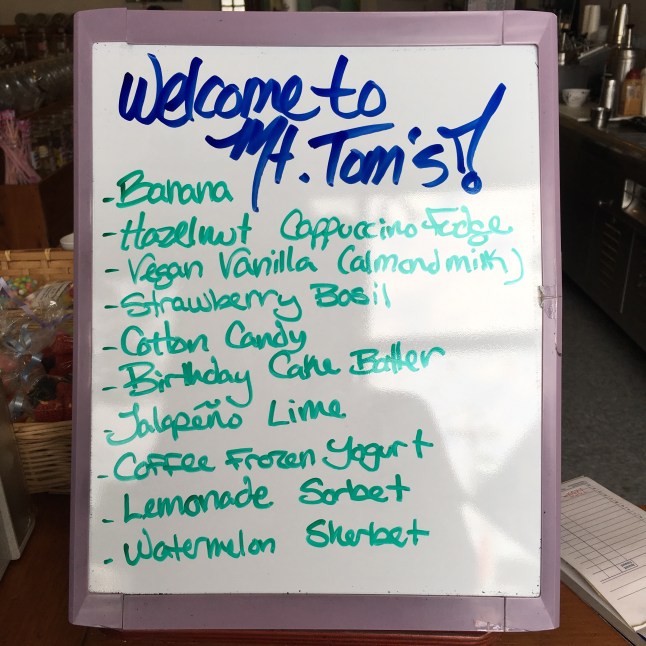 Welcome to
Mt. Tom's!
- Banana
- Hazelnut Cappuccino Fudge
- Vegan Vanilla (almond milk)
- Strawberry Basil
- Cotton Candy
- Birthday Cake Batter
- Jalapeño Lime
- Coffee Frozen Yogurt
- Lemonade Sorbet
- Watermelon Sherbet